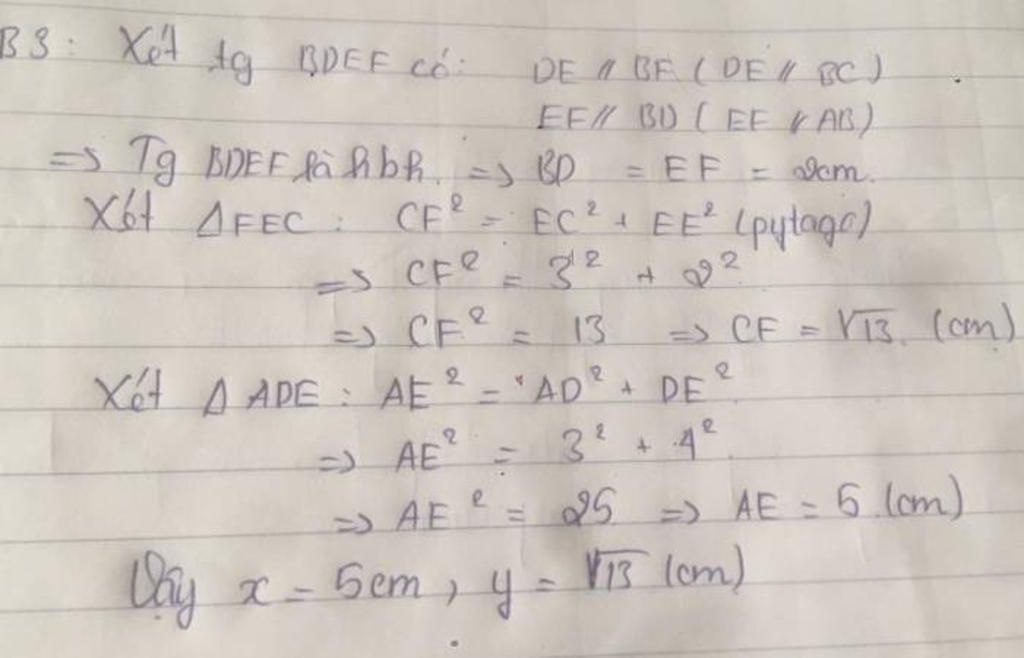 B3: Xét tg BDEF có: DE // BF ( DE // BC )
EF // BD ( EF // AB )
=> Tg BDEF là hbh. => BD = EF = 2cm.
Xét ΔFEC : CF² = EC² + EF² (pytago)
=> CF² = 3² + 2²
=> CF² = 13 => CF = √13 (cm)
Xét Δ ADE : AE² = AD² + DE²
=> AE² = 3² + 4²
=> AE² = 25 => AE = 5 (cm)
Vậy x = 5cm, y = √13 (cm)